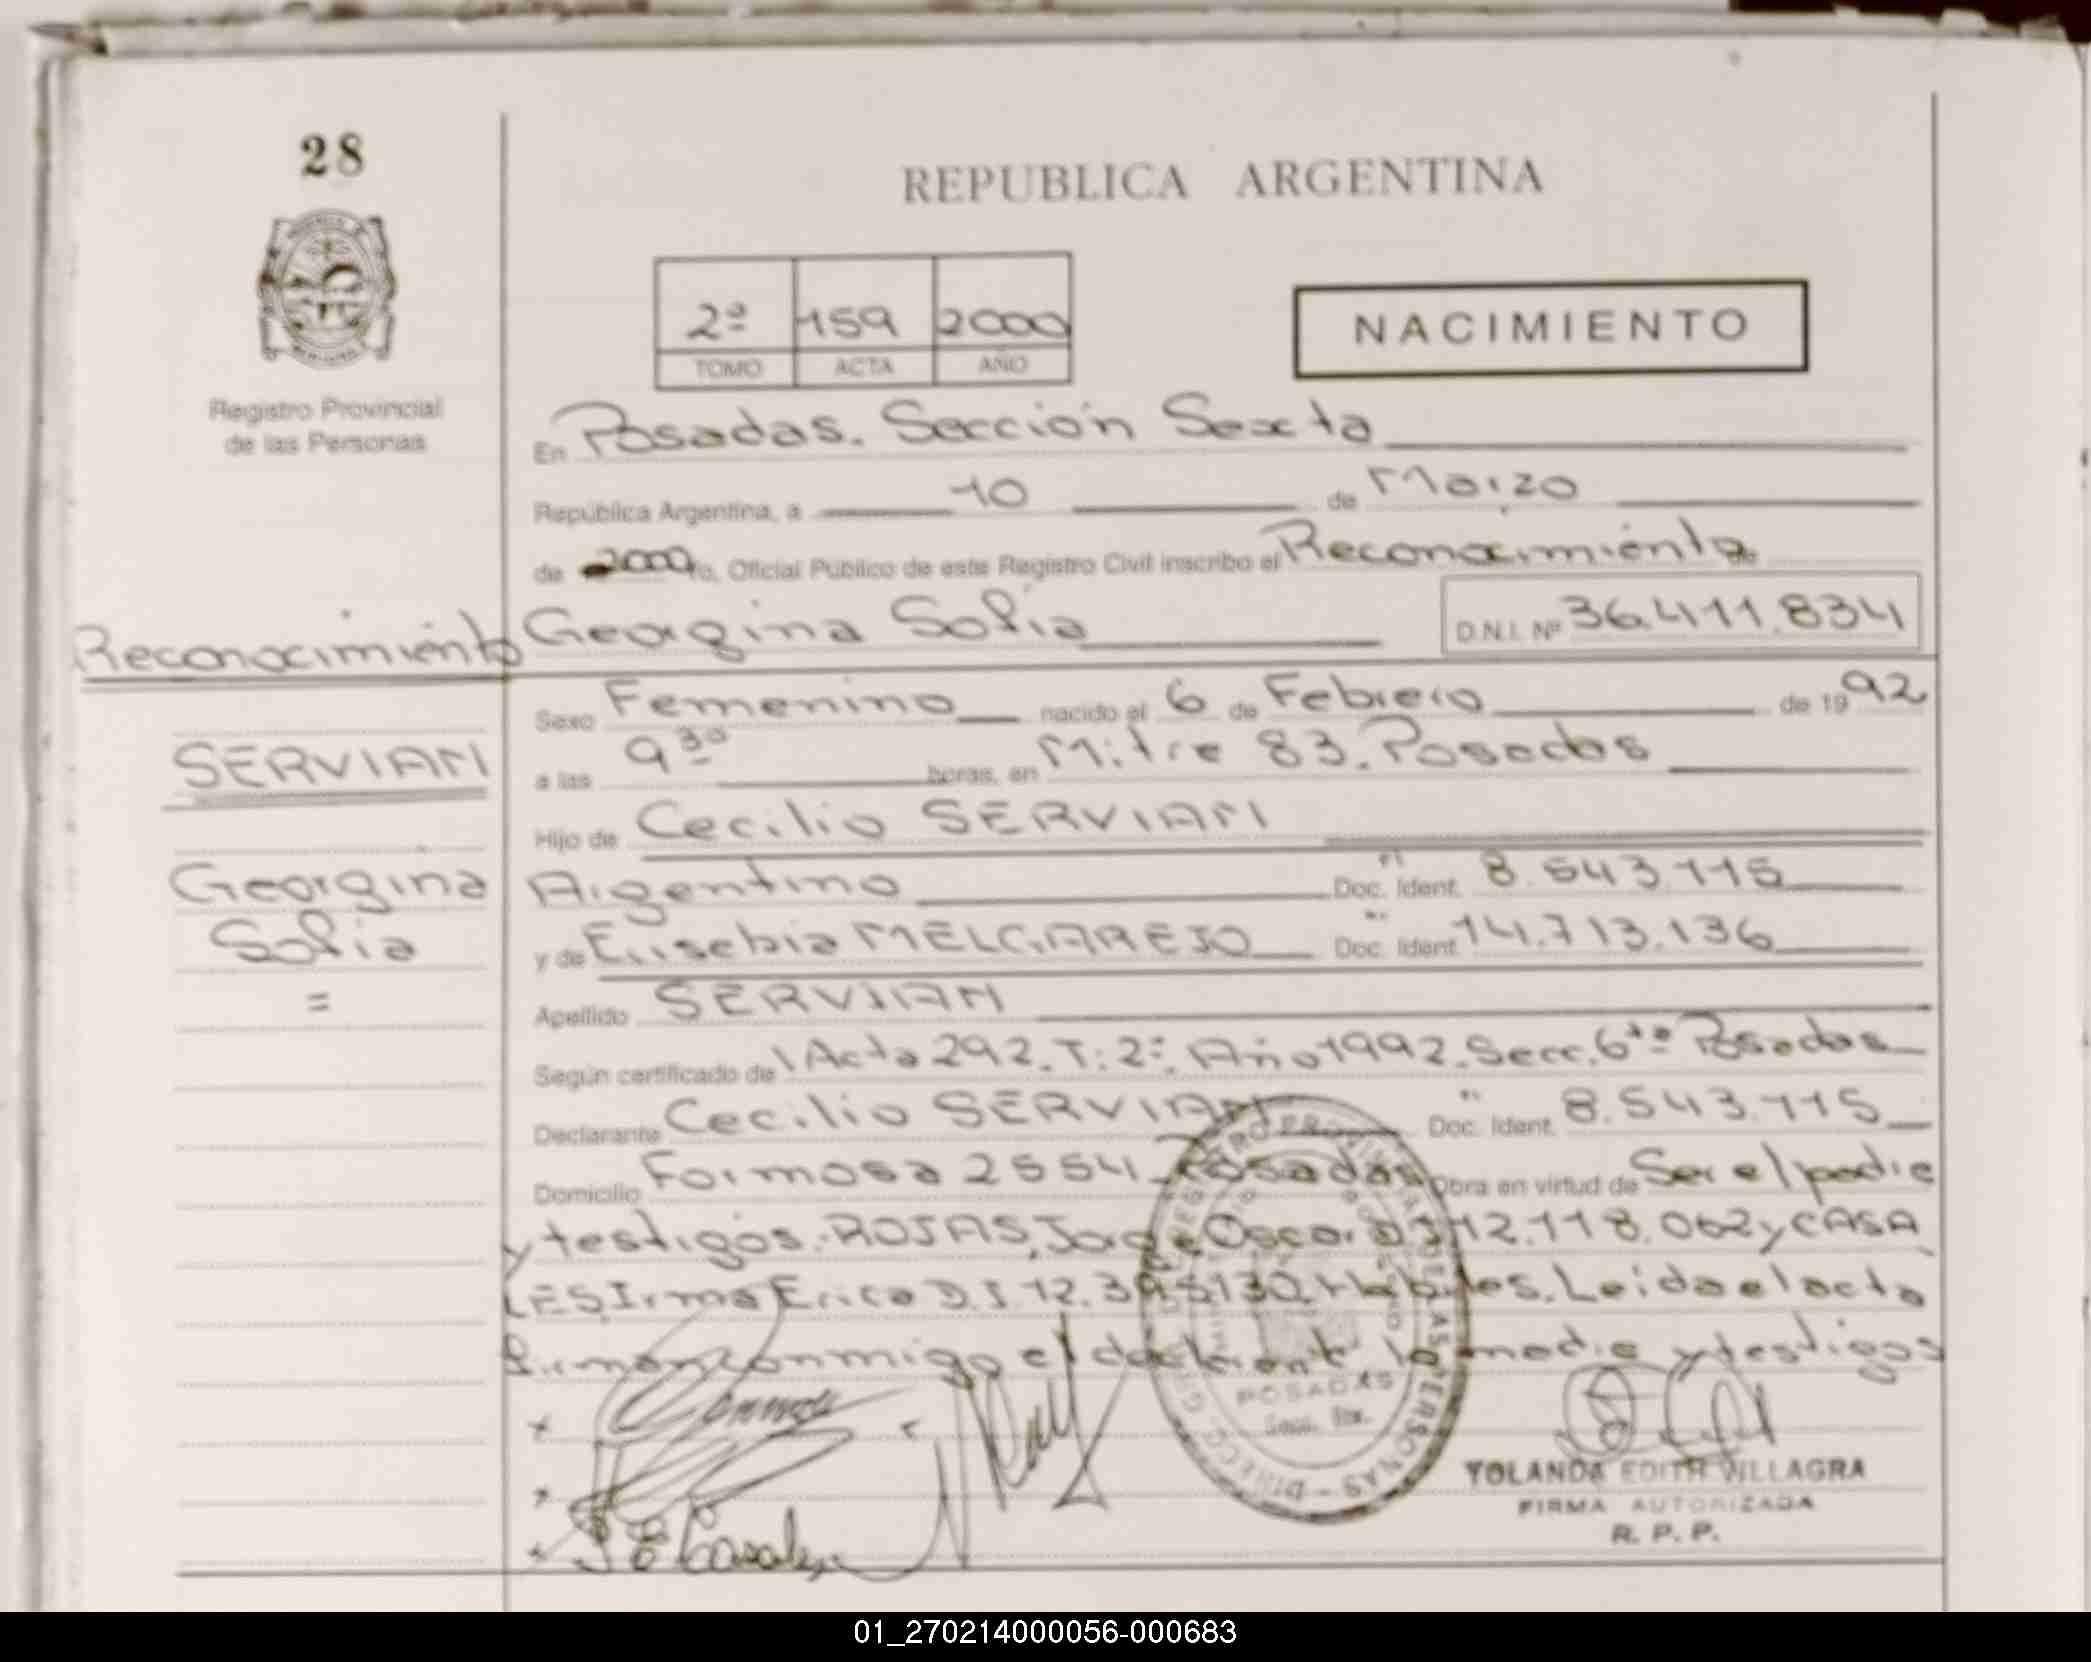 28
REPUBLICA ARGENTINA
2º 159 2000
TOMO ACTA AÑO
NACIMIENTO
Registro Provincial
de las Personas
En Posadas. Sección Sexta
República Argentina, a 10 de Marzo
de 2000 yo, Oficial Público de este Registro Civil inscribo el Reconocimiento de
Reconocimiento Georgina Sofia D.N.I. Nº 36.411.834
Sexo Femenino nacido el 6 de Febrero de 1992
SERVIAN
a las 9 30 horas, en Mitre 83. Posadas
Hijo de Cecilio SERVIAN
Georgina
Argentino Doc. Ident. 8.543.115
Sofia
y de Eusebia MELGAREJO Doc. Ident. 14.713.136
=
Apellido SERVIAN
Según certificado de Acta 292. T: 2º. Año 1992. Secc. 6ta Posadas
Declarante Cecilio SERVIAN Doc. Ident. 8.543.115
Domicilio Formosa 2554 Posadas Obra en virtud de Ser el padre
y testigos: ROJAS, Jorge Oscar D.I 12.118.062 y CASA
LES Irma Erica D.I. 12. Habiles. Leida el acta
firman conmigo el la madre y testigos
POSADAS
Secc. 6ta.
YOLANDA EDITH VILLAGRA
FIRMA AUTORIZADA
R. P. P.
01_270214000056-000683